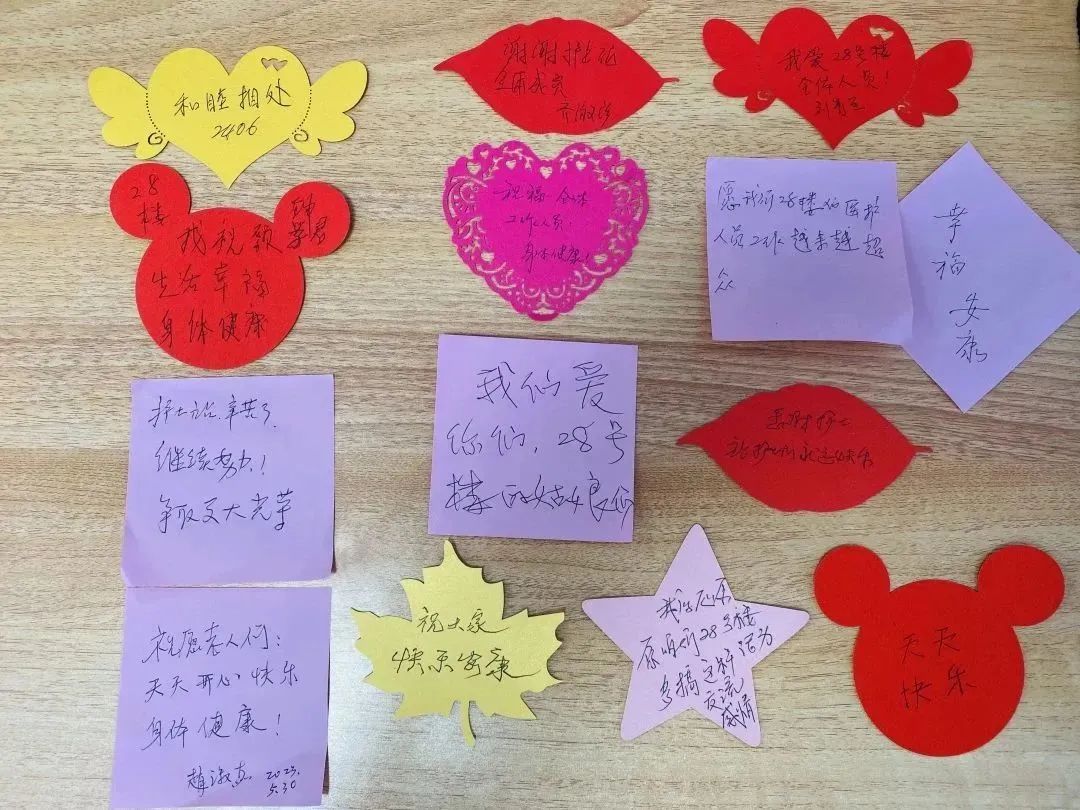 和睦相处
2406
谢谢护士站
全体成员
我爱28号楼
全体人员!
28
楼
我祝愿
生活幸福
身体健康
祝福全体
工作人员
身体健康!
愿我们28楼的医护
人员工作越来越超
众
幸
福
安
康
护士站辛苦了
继续努力!
争取更大光荣
我们爱
你们,28号
楼的姑娘们
感谢护士
祝愿老人们:
天天开心 快乐
身体健康!
2023.
5.30
祝大家
快乐安康
我的心愿
原咱们28号楼
多搞这种活动
交流
感情
天天
快乐